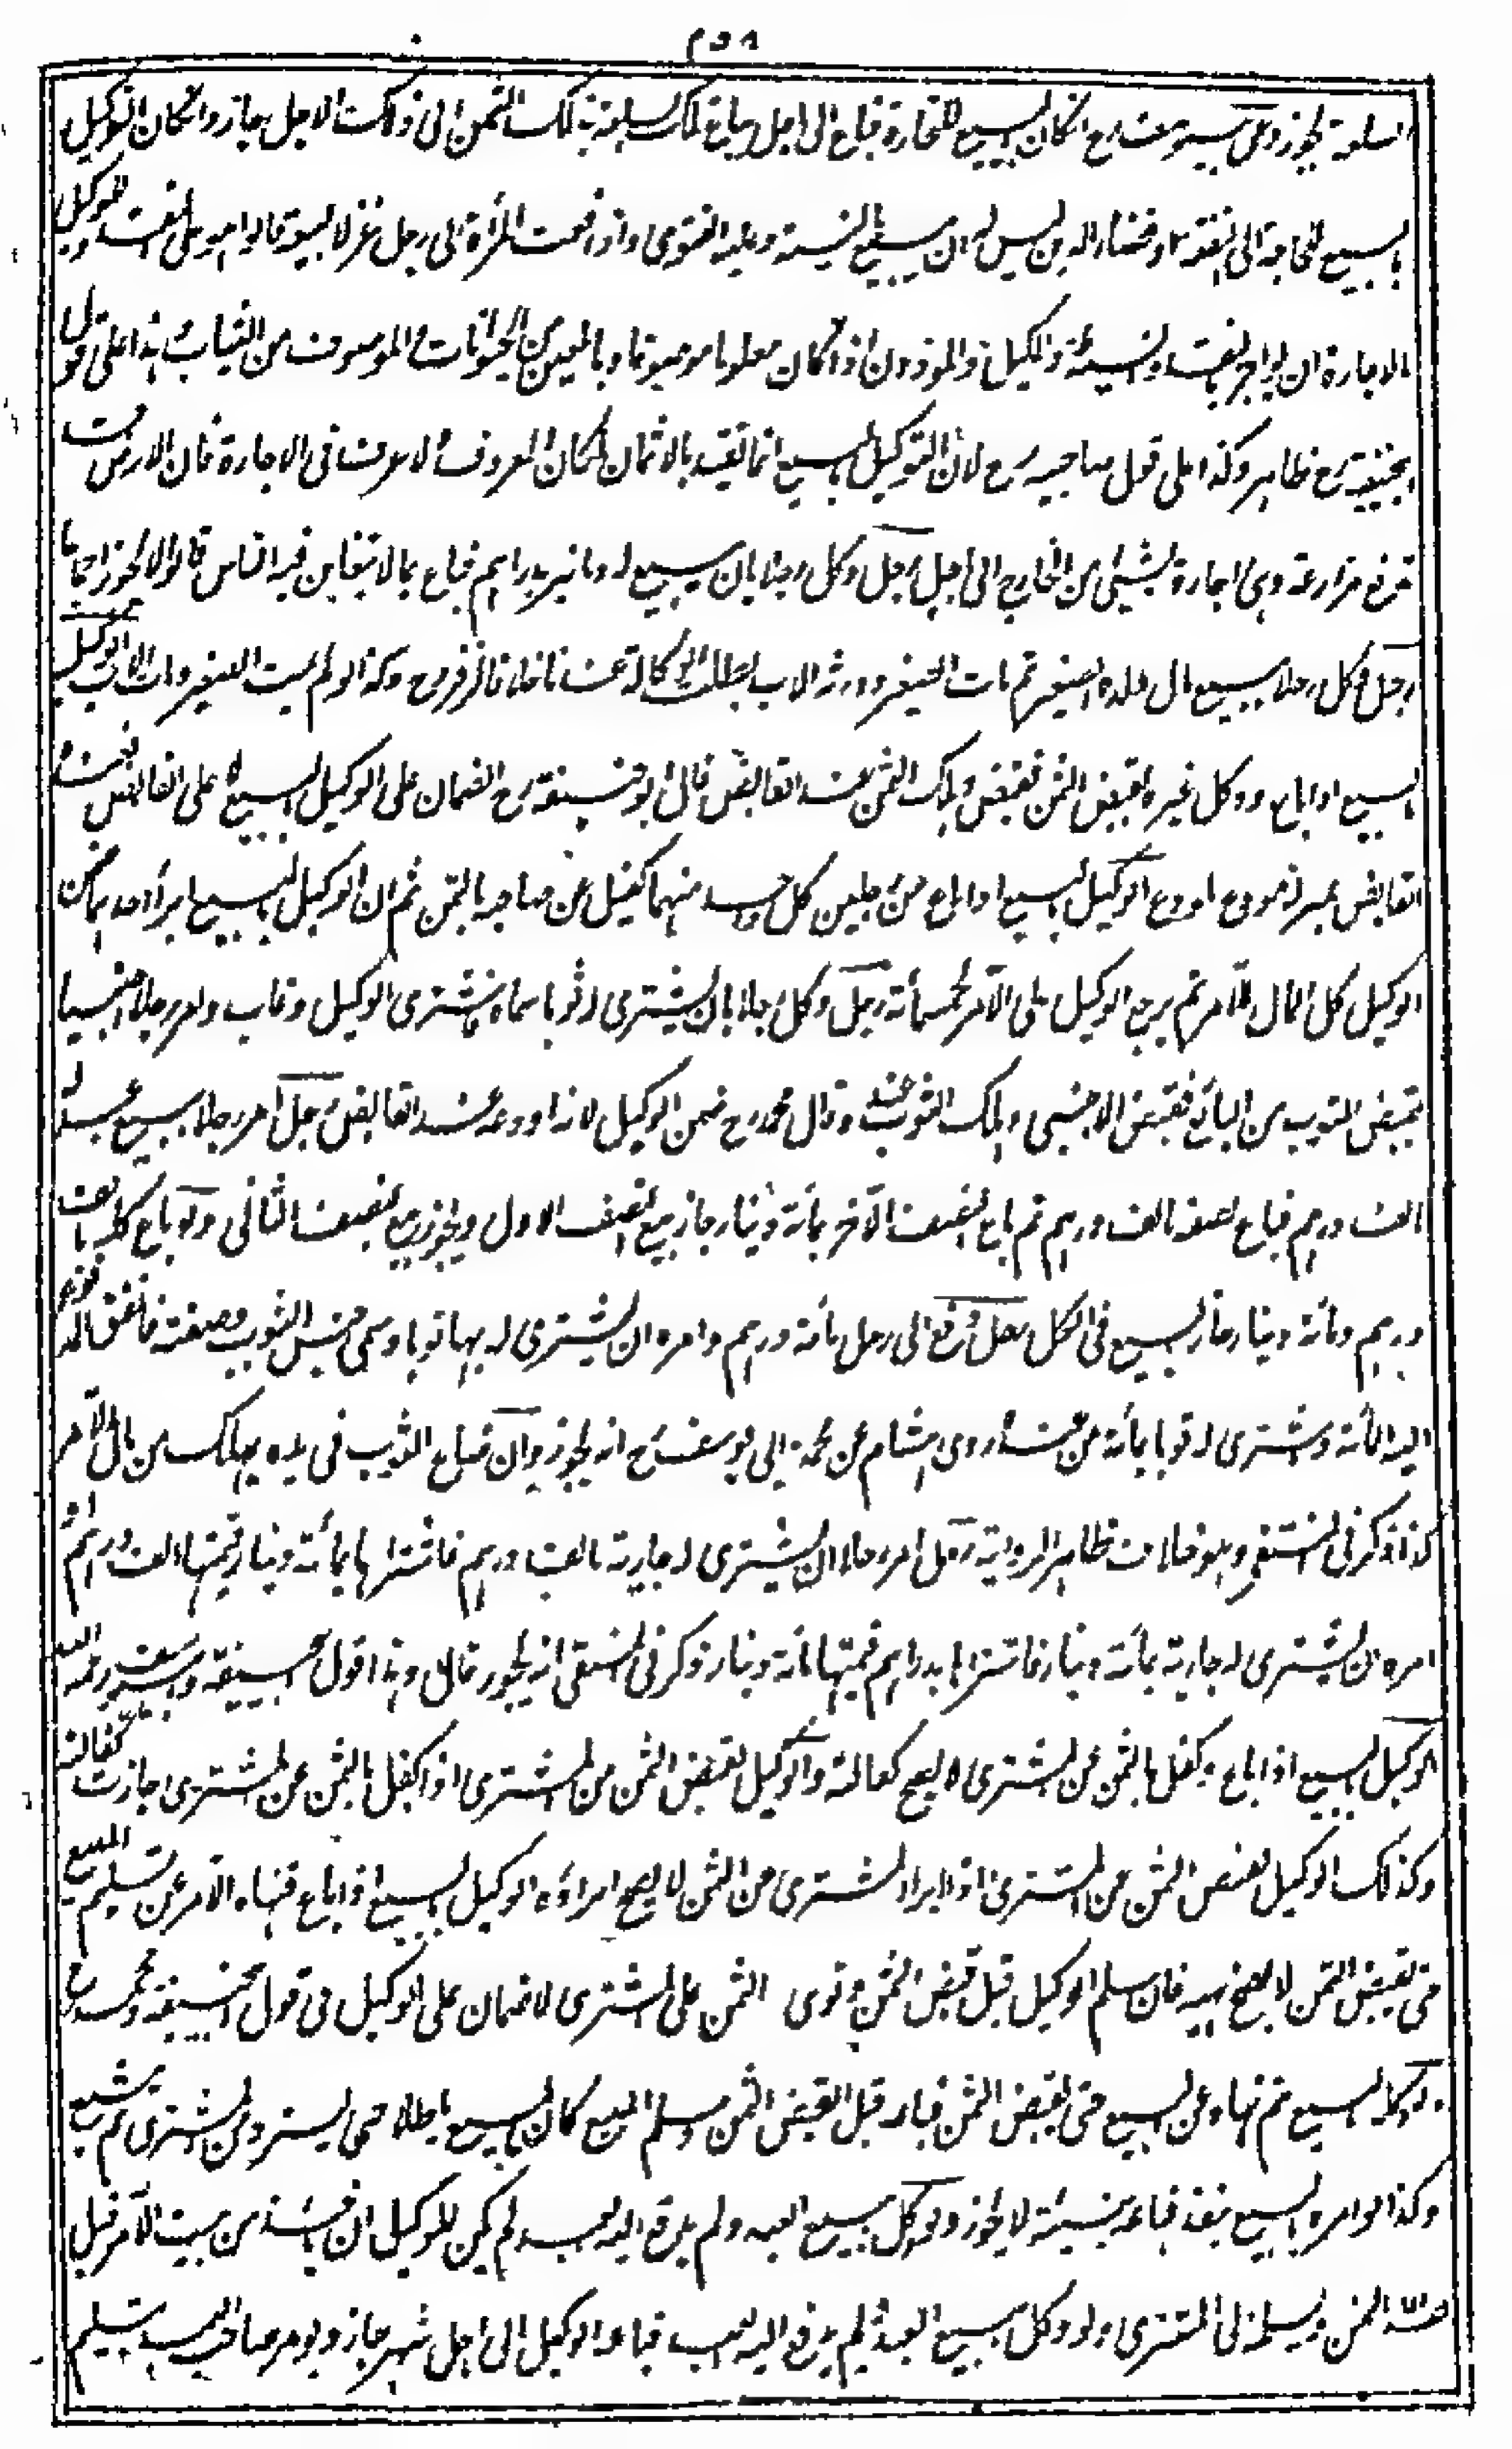 السلعة يجوز وعن ابي يوسف رح ان كان البيع للتجارة فباع الى اجل يباع تلك السلعة بذلك الثمن الى ذلك الاجل جاز وان كان التوكيل
بالبيع للحاجة الى النفقة او قضاء الدين ليس له ان يبيع بالنسيئة وعليه الفتوى واذا دفعت المرأة الى رجل غزلا ليبيع قالوا هو على النقد والوكيل
بالاجارة ان يواجر بالنقد والنسيئة والمكيل والموزون اذا كان معلوما موصوفا وبالمعين من الحيوانات والموصوف من الثياب هذا على قول
ابيحنيفة رح ظاهر وكذا على قول صاحبيه رح لان التوكيل بالبيع انما تقيد بالاثمان لمكان العرف ولا عرف في الاجارة فان الارض قد
تدفع مزارعة وهي اجارة بشيئ من الخارج الى اجل رجل وكل رجلا بان يبيع له دنانير بدراهم فباع بما لا يتغابن فيه الناس قالوا لا يجوز اجماعا
رجل وكل رجلا ببيع مال ولده الصغير ثم مات الصغير وورثه الاب بطلت الوكالة عندنا خلافا لزفر رح وكذا لو لم يمت الصغير ومات الاب الوكيل
بالبيع اذا باع ووكل غيره بقبض الثمن فقبض وهلك الثمن عند القابض قال ابو حنيفة رح الضمان على الوكيل بالبيع لا على القابض
القابض بمنزلة مودع المودع الوكيل بالبيع اذا باع من رجلين كل واحد منهما كفيل عن صاحبه بالثمن ثم ان الوكيل بالبيع ابرأ احدهما ضمن
الوكيل كل المال للآمر ثم يرجع الوكيل على الآخر بخمسمائة رجل وكل رجلا بان يشترى له ثوبا سماه فاشترى الوكيل وغاب وامر رجلا اجنبيا
بقبض الثوب من البائع فقبض الاجنبي وهلك الثوب عنده وقال محمد رح ضمن الوكيل لانه اودعه عند القابض رجل امر رجلا ببيع عبد له
بالف درهم فباع نصفه بالف درهم ثم باع النصف الآخر بمأة دينار جاز بيع النصف الاول ويجوز بيع النصف الثاني ولو باع كله بالف
درهم ومأة دينار جاز البيع في الكل رجل دفع الى رجل مأة درهم وامره ان يشترى له بها ثوبا وسمى جنس الثوب وصفته فانفق
اليه المأة واشترى له ثوبا بمأة من عنده روى هشام عن محمد عن ابي يوسف رح انه يجوز وان ضاع الثوب في يده يهلك من مال الآمر
كذا ذكر في المنتقى وهو خلاف ظاهر الرواية رجل امر رجلا ان يشترى له جارية بالف درهم فاشتراها بمأة دينار قيمتها الف درهم او
امره ان يشترى له جارية بمأة دينار فاشتراها بدراهم قيمتها مأة دينار ذكر في المنتقى انه يجوز قال وهذا قول ابي حنيفة وابي يوسف رحمه الله
الوكيل بالبيع اذا باع وكفل بالثمن عن المشترى لا يصح كفالته والوكيل بقبض الثمن من المشترى اذا كفل بالثمن عن المشترى جازت كفالته
وكذلك الوكيل بقبض الثمن من المشترى اذا ابرأ المشترى من الثمن لا يصح ابراؤه الوكيل بالبيع اذا باع فنهاه الآمر عن تسليم المبيع
حتى يقبض الثمن لا يصح نهيه فان سلم الوكيل قبل قبض الثمن وتوى الثمن على المشترى لا ضمان على الوكيل في قول ابيحنيفة ومحمد رح
وكله بالبيع ثم نهاه عن البيع حتى يقبض الثمن فباع قبل القبض الثمن وسلم المبيع كان البيع باطلا حتى يسترد من المشترى ثم يبيع
وكذا لو امره بالبيع بنقد فباعه بنسيئة لا يجوز ولو وكل ببيع العبد ولم يدفع اليه العبد لم يكن للوكيل ان يأخذ من بيت الآمر قبل
الثمن ويسلمه الى المشترى ولو وكل ببيع العبد ثم لم يدفع اليه العبد فباعه الوكيل الى اجل شهر جاز ويؤمر صاحب العبد بتسليم